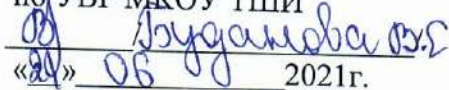 по УВР МКОУ ТШИ
/Буданова В.Е
«24» 06 2021г.